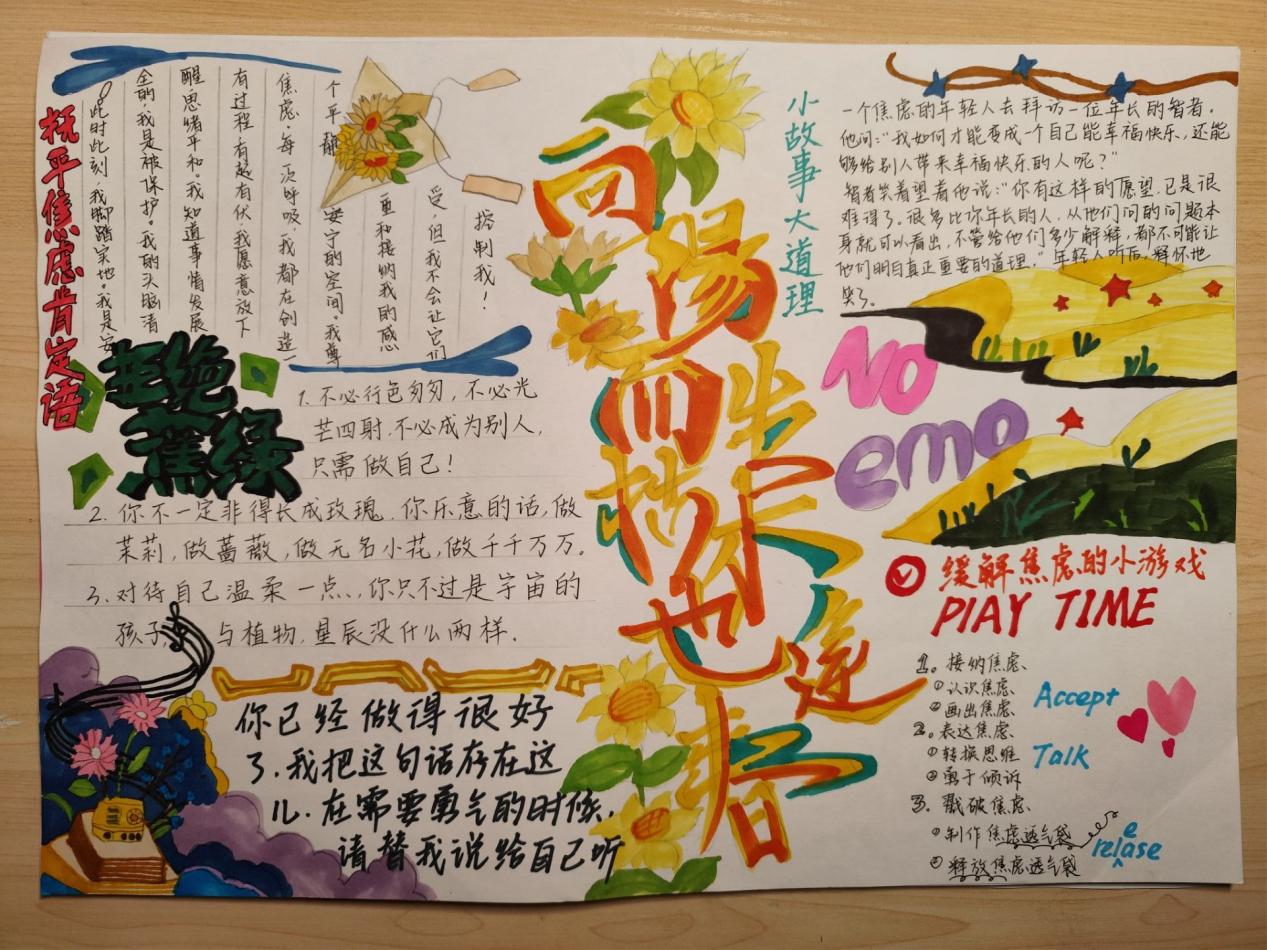 抚平焦虑肯定语
此时此刻,我脚踏实地。我是安
全的,我是被保护,我的头脑清
醒,思绪平和。我知道事情发展
有过程有起有伏,我愿意放下
焦虑,每次呼吸,我都在创造一
个平静安宁的空间。我尊
重和接纳我的感
受,但我不会让它们
控制我!
拒绝
蕉绿
1.不必行色匆匆,不必光
芒四射,不必成为别人,
只需做自己!
2.你不一定非得长成玫瑰,你乐意的话,做
茉莉,做蔷薇,做无名小花,做千千万万。
3.对待自己温柔一点,你只不过是宇宙的
孩子,与植物,星辰没什么两样.
你已经做得很好
了.我把这句话存在这
儿.在需要勇气的时候,
请替我说给自己听
向陽而生
也逢春
小故事大道理
一个焦虑的年轻人去拜访一位年长的智者.
他问:“我如何才能变成一个自己能幸福快乐,还能
够给别人带来幸福快乐的人呢?”
智者笑着望着他说:“你有这样的愿望,已是很
难得了.很多比你年长的人,从他们问的问题本
身就可以看出,不管给他们多少解释,都不可能让
他们明白真正重要的道理.”年轻人听后,释怀地
笑了。
NO
emo
缓解焦虑的小游戏
PlAY TIME
1。接纳焦虑
①认识焦虑
②画出焦虑
Accept
2。表达焦虑
①转换思维
②勇于倾诉
Talk
3。戳破焦虑
①制作焦虑透气袋
②释放焦虑透气袋
relase
e